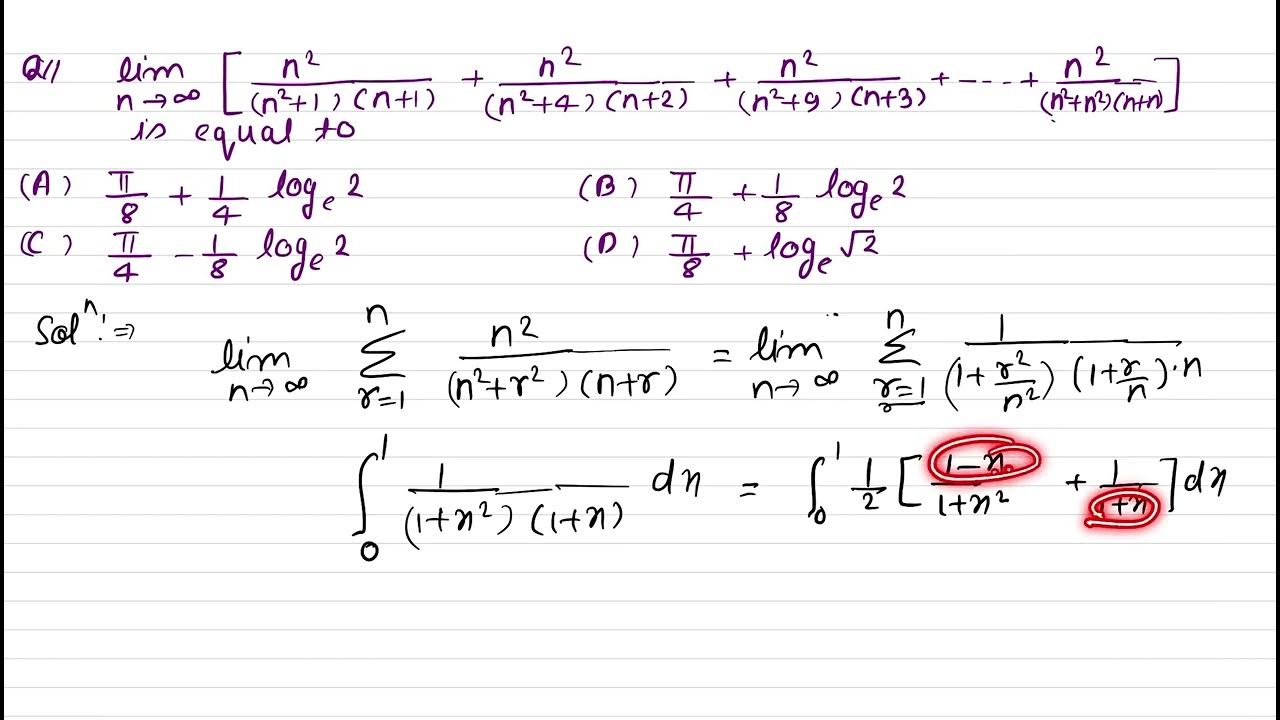 Q// lim n→∞ [ n²/((n²+1)(n+1)) + n²/((n²+4)(n+2)) + n²/((n²+9)(n+3)) + ---- + n²/((n²+n²)(n+n)) ]
is equal to
(A) π/8 + 1/4 logₑ 2 (B) π/4 + 1/8 logₑ 2
(C) π/4 - 1/8 logₑ 2 (D) π/8 + logₑ √2
Solⁿ: ⇒ lim n→∞ Σ r=1 n n²/((n²+r²)(n+r)) = lim n→∞ Σ r=1 n 1/((1+r²/n²)(1+r/n)·n)
∫₀¹ 1/((1+x²)(1+x)) dx = ∫₀¹ 1/2 [ (1-x)/(1+x²) + 1/(1+x) ] dx